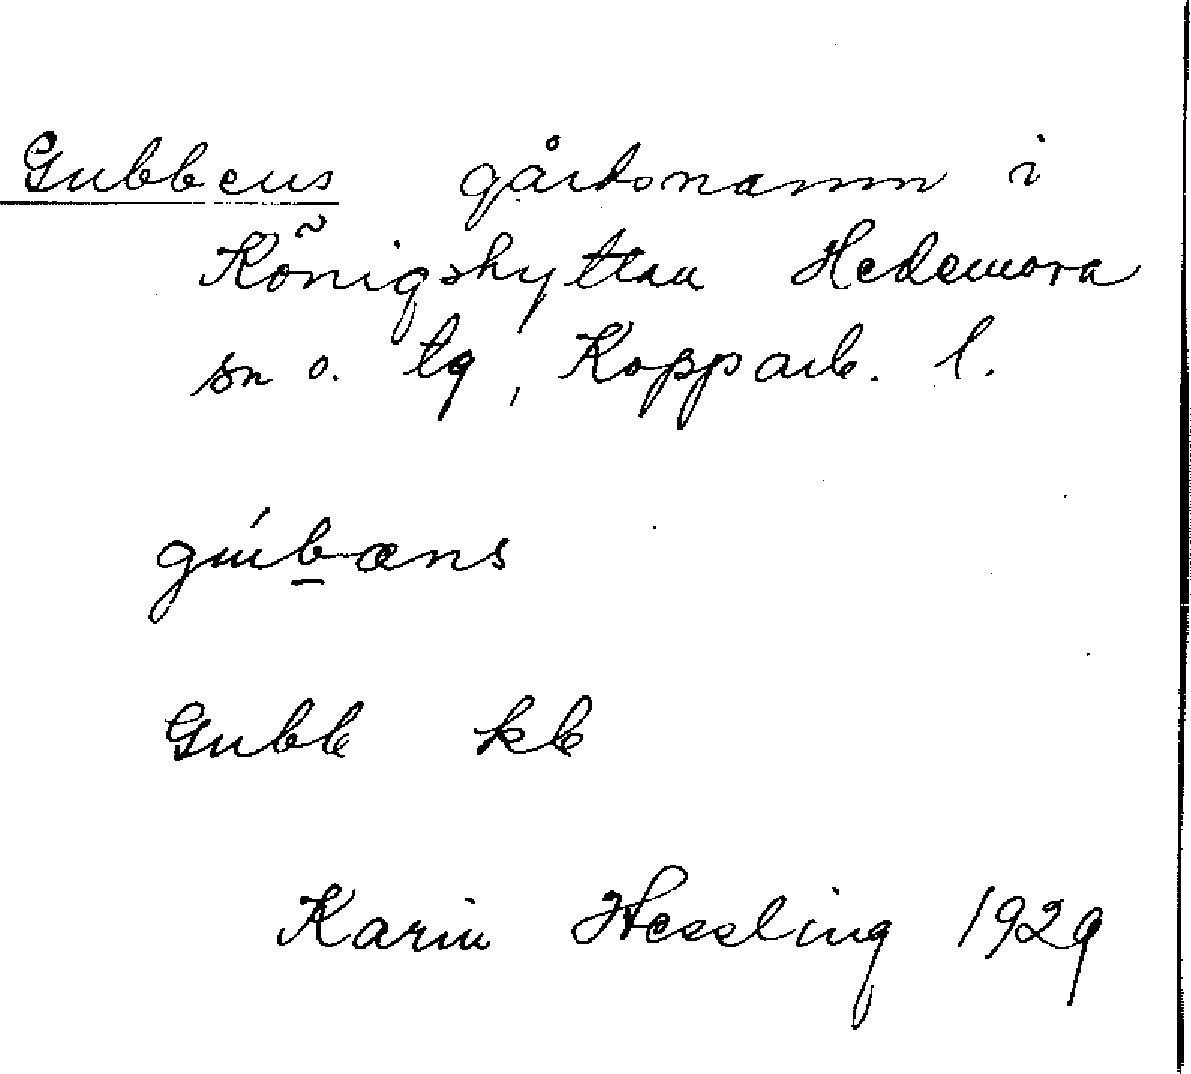 Gubbens gårdsnamn i
Königshyttan Hedemora
sn o. tg, Kopparb. l.
gúbæns
Gubb kb
Karin Hessling 1929